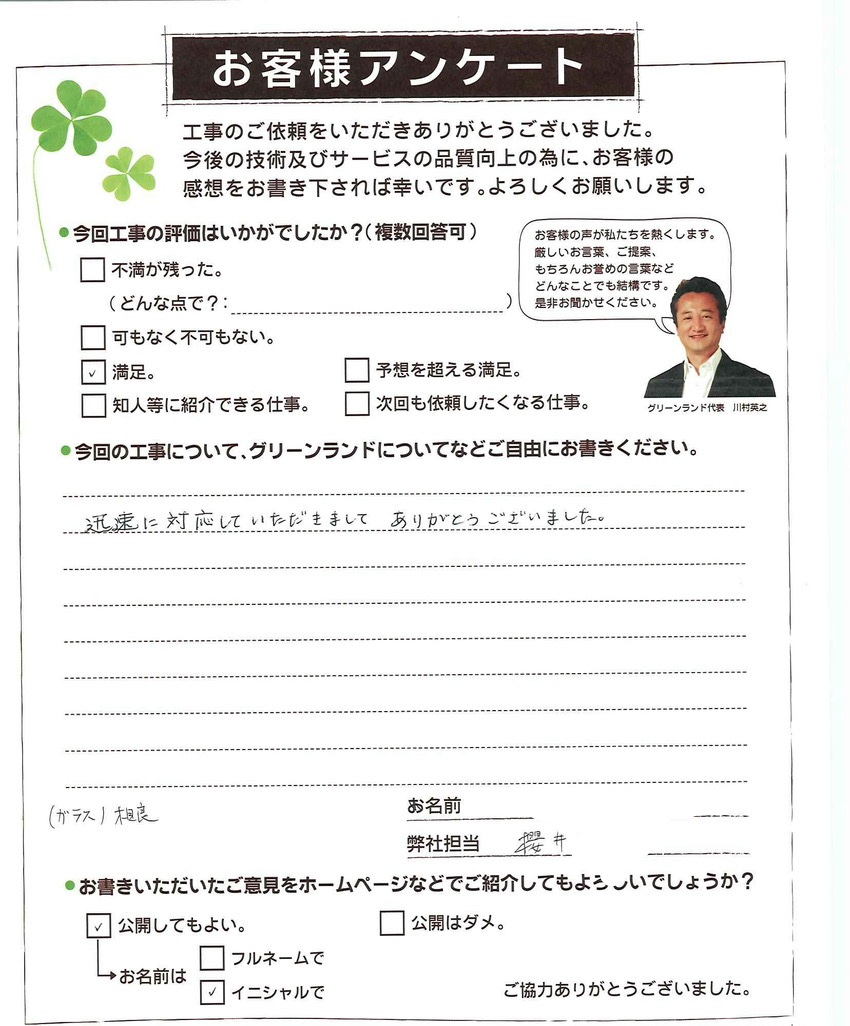 お客様アンケート
工事のご依頼をいただきありがとうございました。
今後の技術及びサービスの品質向上の為に、お客様の
感想をお書き下されば幸いです。よろしくお願いします。
●今回工事の評価はいかがでしたか?(複数回答可)
不満が残った。
(どんな点で?: )
可もなく不可もない。
✓ 満足。 予想を超える満足。
知人等に紹介できる仕事。 次回も依頼したくなる仕事。
お客様の声が私たちを熱くします。
厳しいお言葉、ご提案、
もちろんお誉めの言葉など
どんなことでも結構です。
是非お聞かせください。
グリーンランド代表 川村英之
●今回の工事について、グリーンランドについてなどご自由にお書きください。
迅速に対応していただきまして ありがとうございました。
(ガラス) 相良
お名前
弊社担当 櫻井
●お書きいただいたご意見をホームページなどでご紹介してもよろしいでしょうか?
✓ 公開してもよい。 公開はダメ。
お名前は
フルネームで
✓ イニシャルで
ご協力ありがとうございました。